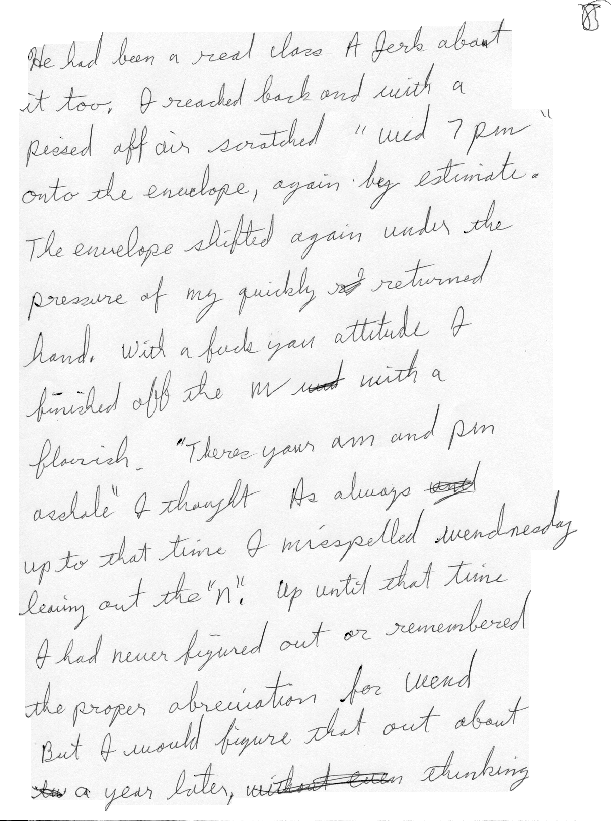 8
He had been a real class A Jerk about
it too. I reached back and with a
pissed off air scratched "wed 7 pm"
onto the envelope, again by estimate.
The envelope shifted again under the
pressure of my quickly returned
hand. With a fuck you attitude I
finished off the M with a
flourish. "Theres your am and pm
asshole" I thought As always
up to that time I misspelled wendnesday
leaving out the "n". Up until that time
I had never figured out or remembered
the proper abreviation for Wend
But I would figure that out about
a year later, without even thinking